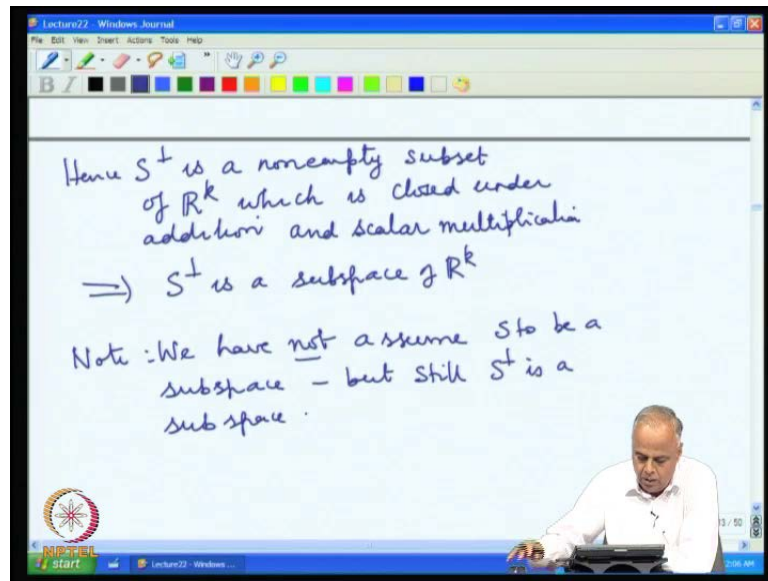 Lecture22 - Windows Journal
File Edit View Insert Actions Tools Help
B I
Hence S⊥ is a nonempty subset
of R^k which is closed under
addition and scalar multiplication
⟹ S⊥ is a subspace of R^k
Note : We have not assume S to be a
subspace – but still S⊥ is a
subspace .
NPTEL
13 / 50
start Lecture22 - Windows ... 2:06 AM